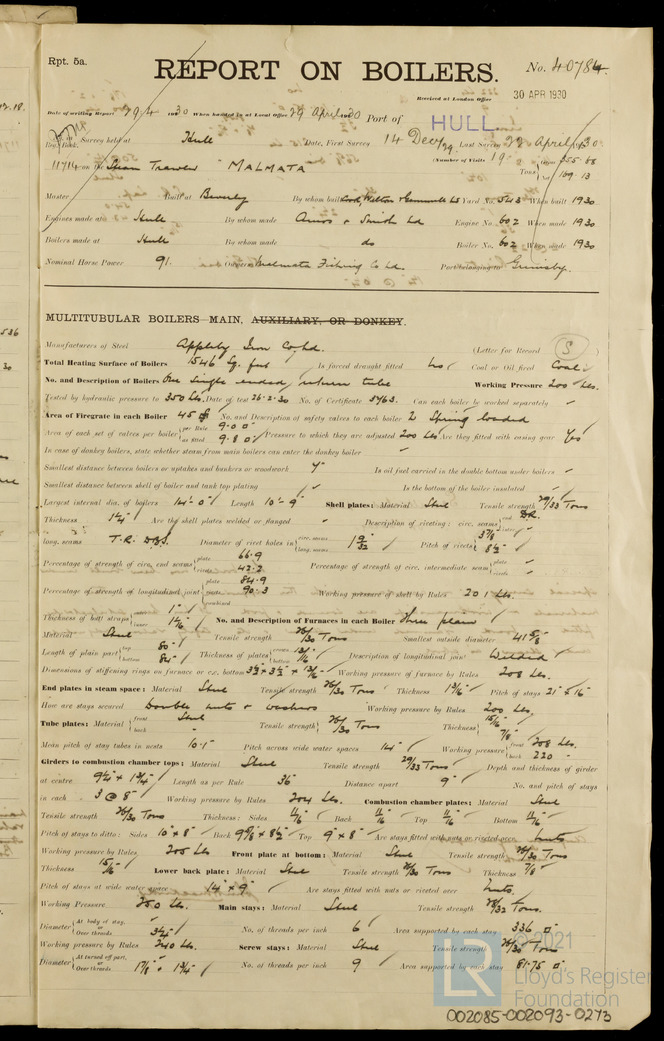 Rpt. 5a.
REPORT ON BOILERS.
No. 40784.
Received at London Office 30 APR 1930
Date of writing Report 29.4 1930 When handed in at Local Office 29 April 1930 Port of HULL.
No. in Reg. Book. Survey held at Hull Date, First Survey 14 Decr 29 Last Survey 22 April 1930
11714 on the Steam Trawler "MALMATA" (Number of Visits 19) Tons Gross 355.68 Net 149.13
Master Built at Beverley By whom built Cook, Welton & Gemmell Ld Yard No. 543 When built 1930
Engines made at Hull By whom made Amos & Smith Ld Engine No. 602 When made 1930
Boilers made at Hull By whom made do Boiler No. 602 When made 1930
Nominal Horse Power 91. Owners Malmata Fishing Co Ld. Port belonging to Grimsby.
MULTITUBULAR BOILERS MAIN, AUXILIARY, OR DONKEY.
Manufacturers of Steel Appleby Iron Co Ld. (Letter for Record S)
Total Heating Surface of Boilers 1546 Sq. feet Is forced draught fitted No Coal or Oil fired Coal
No. and Description of Boilers One single ended, return tube Working Pressure 200 Lbs.
Tested by hydraulic pressure to 350 Lbs. Date of test 26.2.30 No. of Certificate 3763. Can each boiler be worked separately
Area of Firegrate in each Boiler 45 No. and Description of safety valves to each boiler 2 Spring loaded
Area of each set of valves per boiler per Rule 9.0 as fitted 9.8 Pressure to which they are adjusted 200 Lbs Are they fitted with easing gear Yes
In case of donkey boilers, state whether steam from main boilers can enter the donkey boiler
Smallest distance between boilers or uptakes and bunkers or woodwork Is oil fuel carried in the double bottom under boilers
Smallest distance between shell of boiler and tank top plating Is the bottom of the boiler insulated
Largest internal dia. of boilers 14'-0" Length 10'-9" Shell plates: Material Steel Tensile strength 29/33 Tons
Thickness 1 1/4" Are the shell plates welded or flanged Description of riveting: circ. seams end D.R. inter.
long. seams T.R. D.B.S. Diameter of rivet holes in circ. seams long. seams 1 9/32 Pitch of rivets 3 7/8 8 1/2
Percentage of strength of circ. end seams plate 66.9 rivets 42.2 Percentage of strength of circ. intermediate seam plate rivets
Percentage of strength of longitudinal joint plate 84.9 rivets 90.3 combined Working pressure of shell by Rules 201 Lbs.
Thickness of butt straps outer 1" inner 1 1/16 No. and Description of Furnaces in each Boiler Three plain
Material Steel Tensile strength 26/30 Tons Smallest outside diameter 41 5/8
Length of plain part top 80" bottom 84" Thickness of plates crown bottom 13/16 Description of longitudinal joint Welded
Dimensions of stiffening rings on furnace or c.c. bottom 3 1/2 x 3 1/2 x 13/16 Working pressure of furnace by Rules 208 Lbs.
End plates in steam space: Material Steel Tensile strength 26/30 Tons Thickness 1 3/16 Pitch of stays 21" x 16"
How are stays secured Double nuts & washers Working pressure by Rules 200 Lbs.
Tube plates: Material front back Steel Tensile strength 26/30 Tons Thickness 15/16 7/8
Mean pitch of stay tubes in nests 10.1 Pitch across wide water spaces 14" Working pressure front 208 Lbs. back 220
Girders to combustion chamber tops: Material Steel Tensile strength 29/33 Tons Depth and thickness of girder
at centre 9 1/4" x 1 3/4" Length as per Rule 36" Distance apart 9" No. and pitch of stays
in each 3 @ 8" Working pressure by Rules 204 Lbs. Combustion chamber plates: Material Steel
Tensile strength 26/30 Tons Thickness: Sides 11/16 Back 11/16 Top 11/16 Bottom 11/16
Pitch of stays to ditto: Sides 10" x 8" Back 9 5/8 x 8 1/2 Top 9" x 8" Are stays fitted with nuts or riveted over Nuts
Working pressure by Rules 205 Lbs Front plate at bottom: Material Steel Tensile strength 26/30 Tons
Thickness 15/16 Lower back plate: Material Steel Tensile strength 26/30 Tons Thickness 7/8
Pitch of stays at wide water space 14" x 9" Are stays fitted with nuts or riveted over Nuts.
Working Pressure 250 Lbs. Main stays: Material Steel Tensile strength 28/32 Tons.
Diameter At body of stay, or Over threads 3 1/4" No. of threads per inch 6 Area supported by each stay 336
Working pressure by Rules 240 Lbs. Screw stays: Material Steel Tensile strength 26/30 Tons
Diameter At turned off part, or Over threads 1 7/8 & 1 3/4" No. of threads per inch 9 Area supported by each stay 81.75
© 2021
LR
Lloyd's Register
Foundation
002085-002093-0273